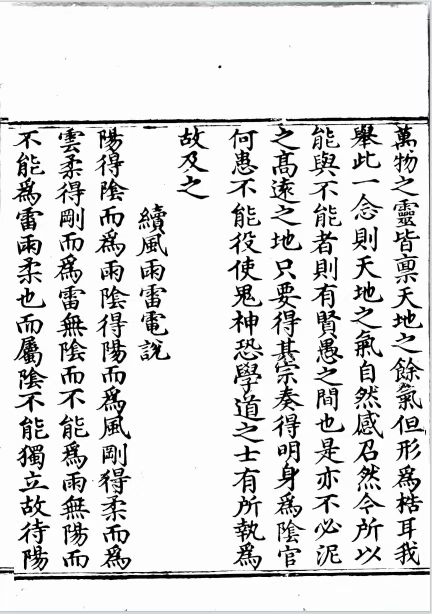 萬物之靈皆禀天地之餘氣但形為梏耳我
舉此一念則天地之氣自然感召然今所以
能與不能者則有賢愚之間也是亦不必泥
之髙逺之地只要得其宗奏得明身為陰官
何患不能役使鬼神恐學道之士有所執為
故及之
續風雨雷電說
陽得陰而為雨陰得陽而為風剛得柔而為
雲柔得剛而為雷無陰而不能為雨無陽而
不能為雷雨柔也而屬陰不能獨立故待陽